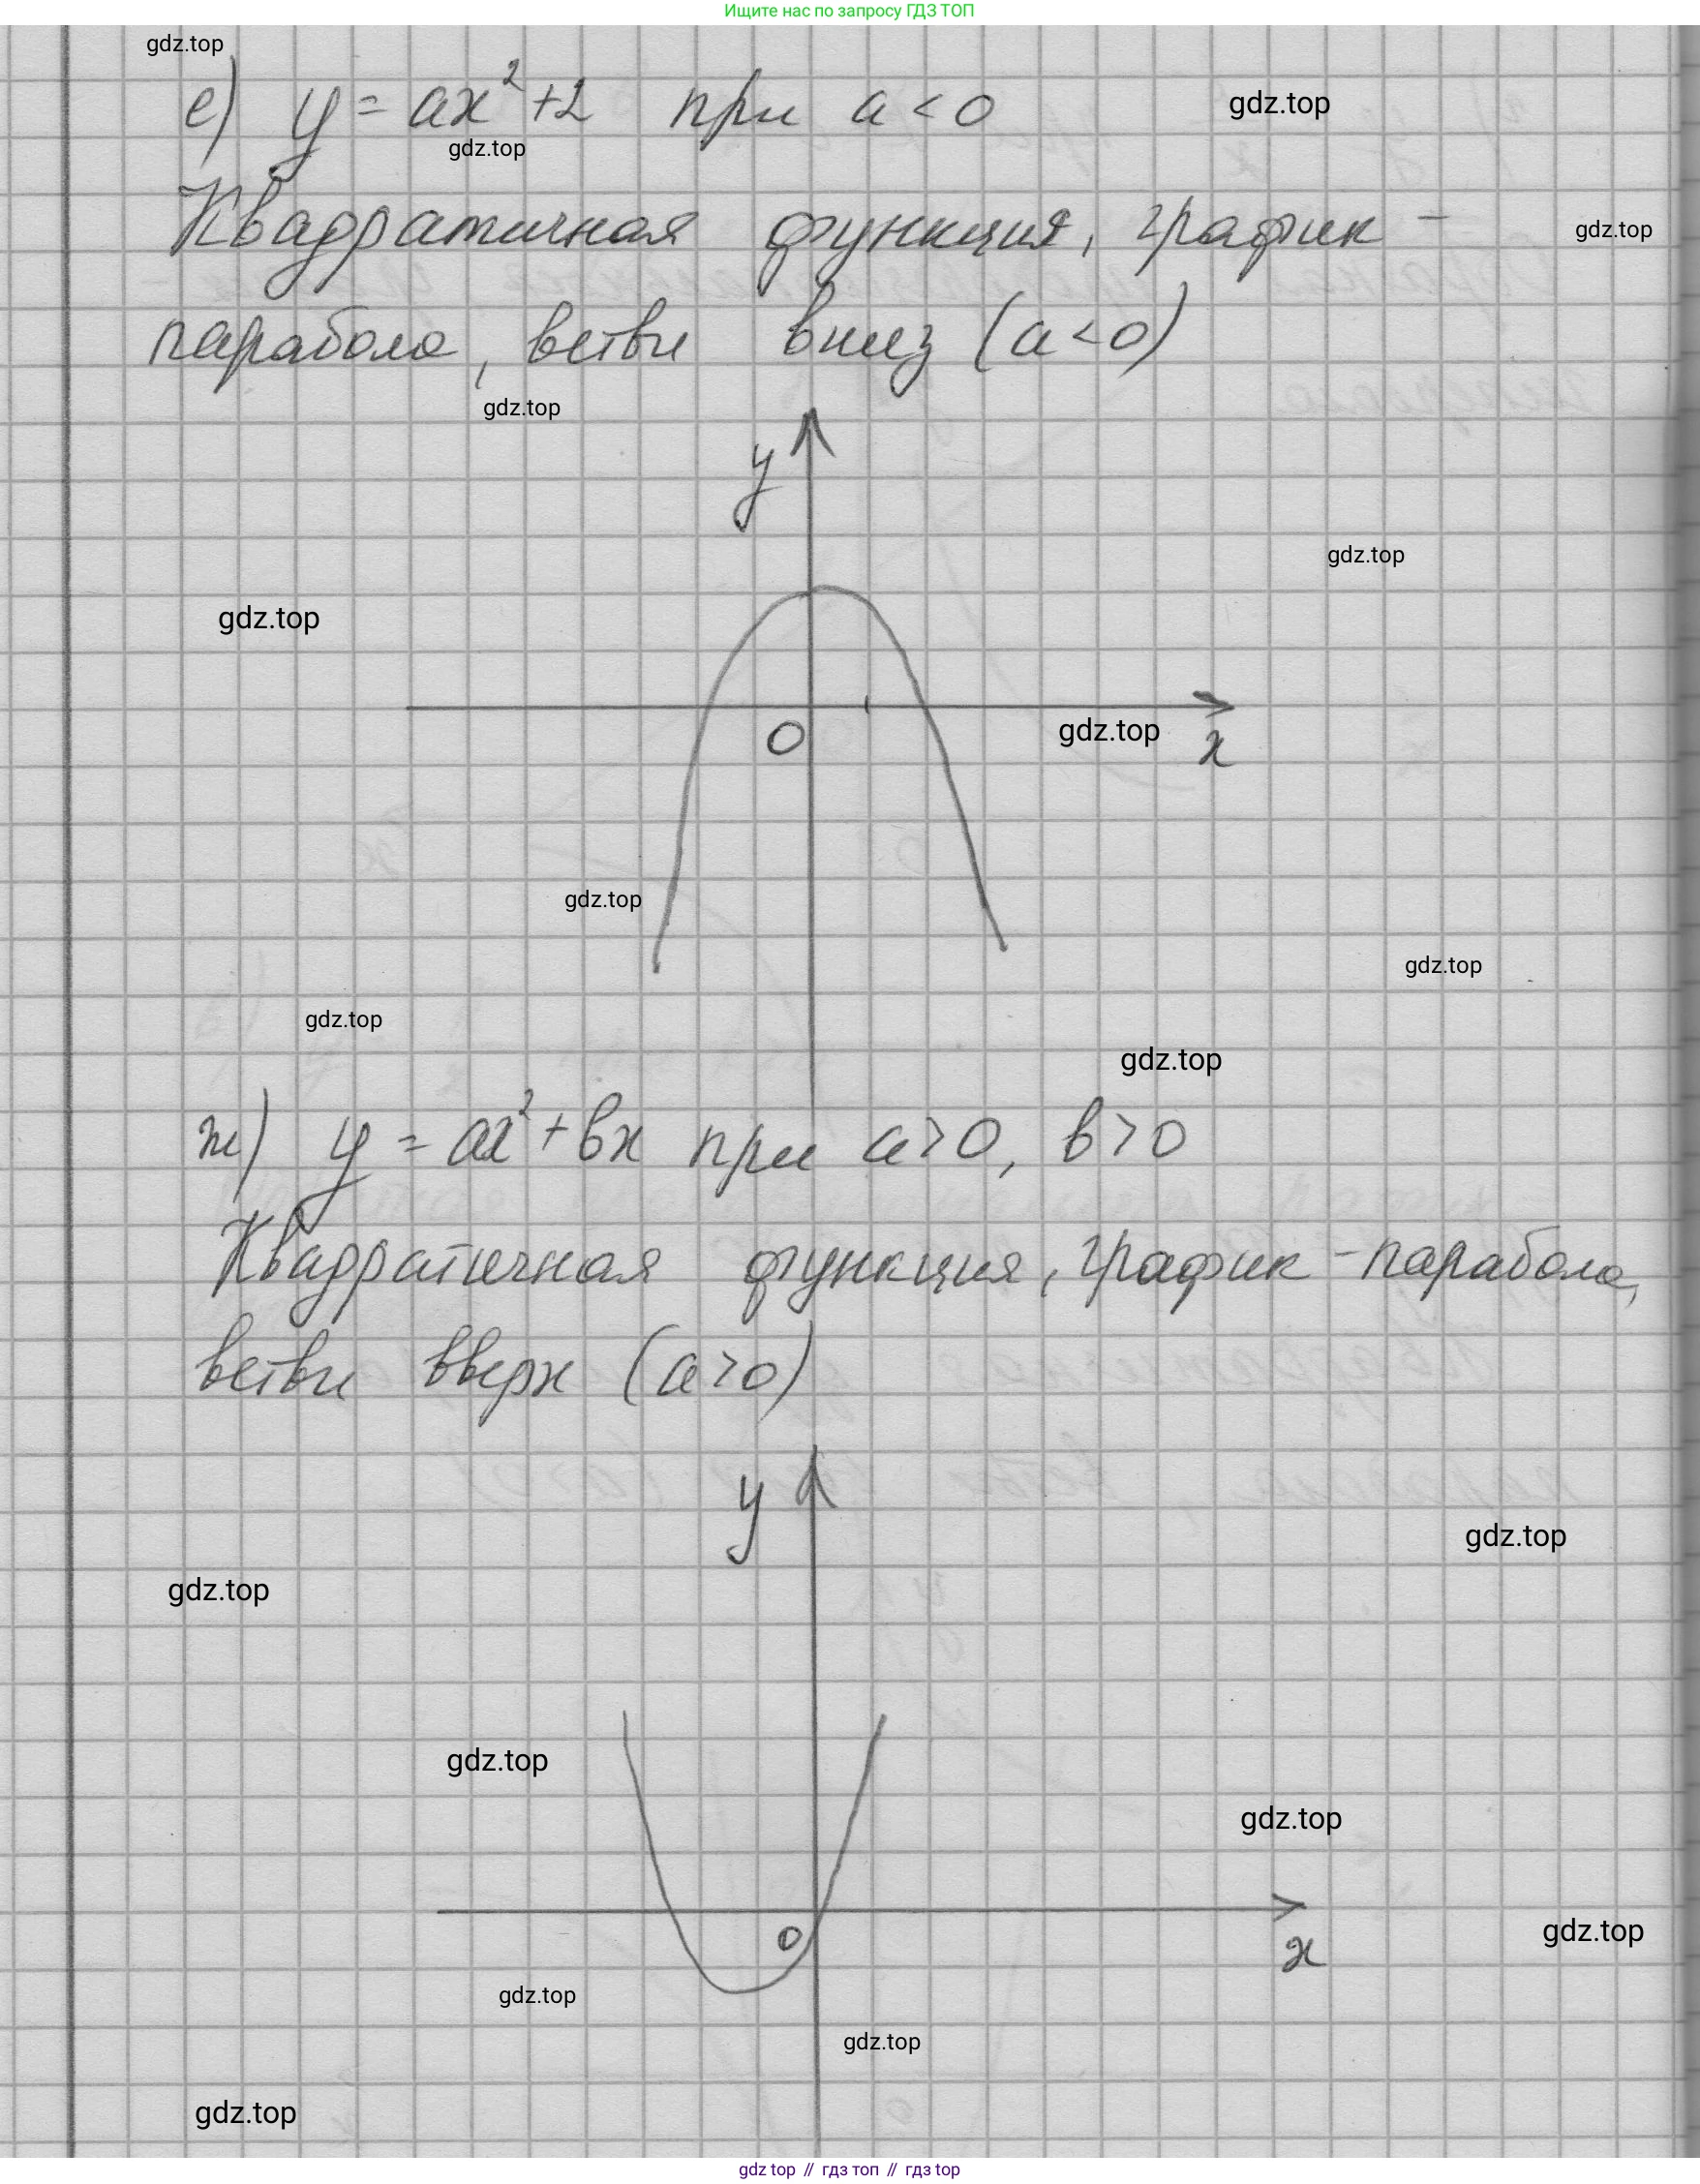 Ищите нас по запросу ГДЗ ТОП
gdz.top
е) y = ax²+2 при a < 0
gdz.top
gdz.top
Квадратичная функция, график -
gdz.top
парабола, ветви вниз (a<0)
gdz.top
y
gdz.top
gdz.top
0
gdz.top
x
gdz.top
gdz.top
gdz.top
gdz.top
ж) y = ax²+bx при a>0, b>0
Квадратичная функция, график - парабола,
ветви вверх (a>0)
y
gdz.top
gdz.top
gdz.top
gdz.top
0
x
gdz.top
gdz.top
gdz.top
gdz.top
gdz top // гдз топ // гдз top